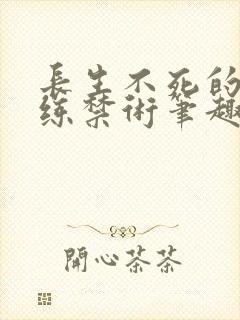 長生不死的
练禁術筆趣
開心茶茶